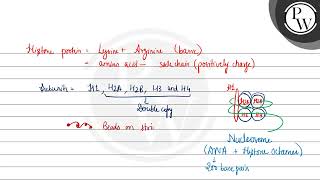 PW
Histone protein = Lysine + Arginine (basic)
= amino acid – side chain (positively charge)
Subunits = H1, H2A, H2B, H3 and H4
H1
Double copy
Beads on stri
Nucleosome
(DNA + Histone Octamer)
200 base pairs